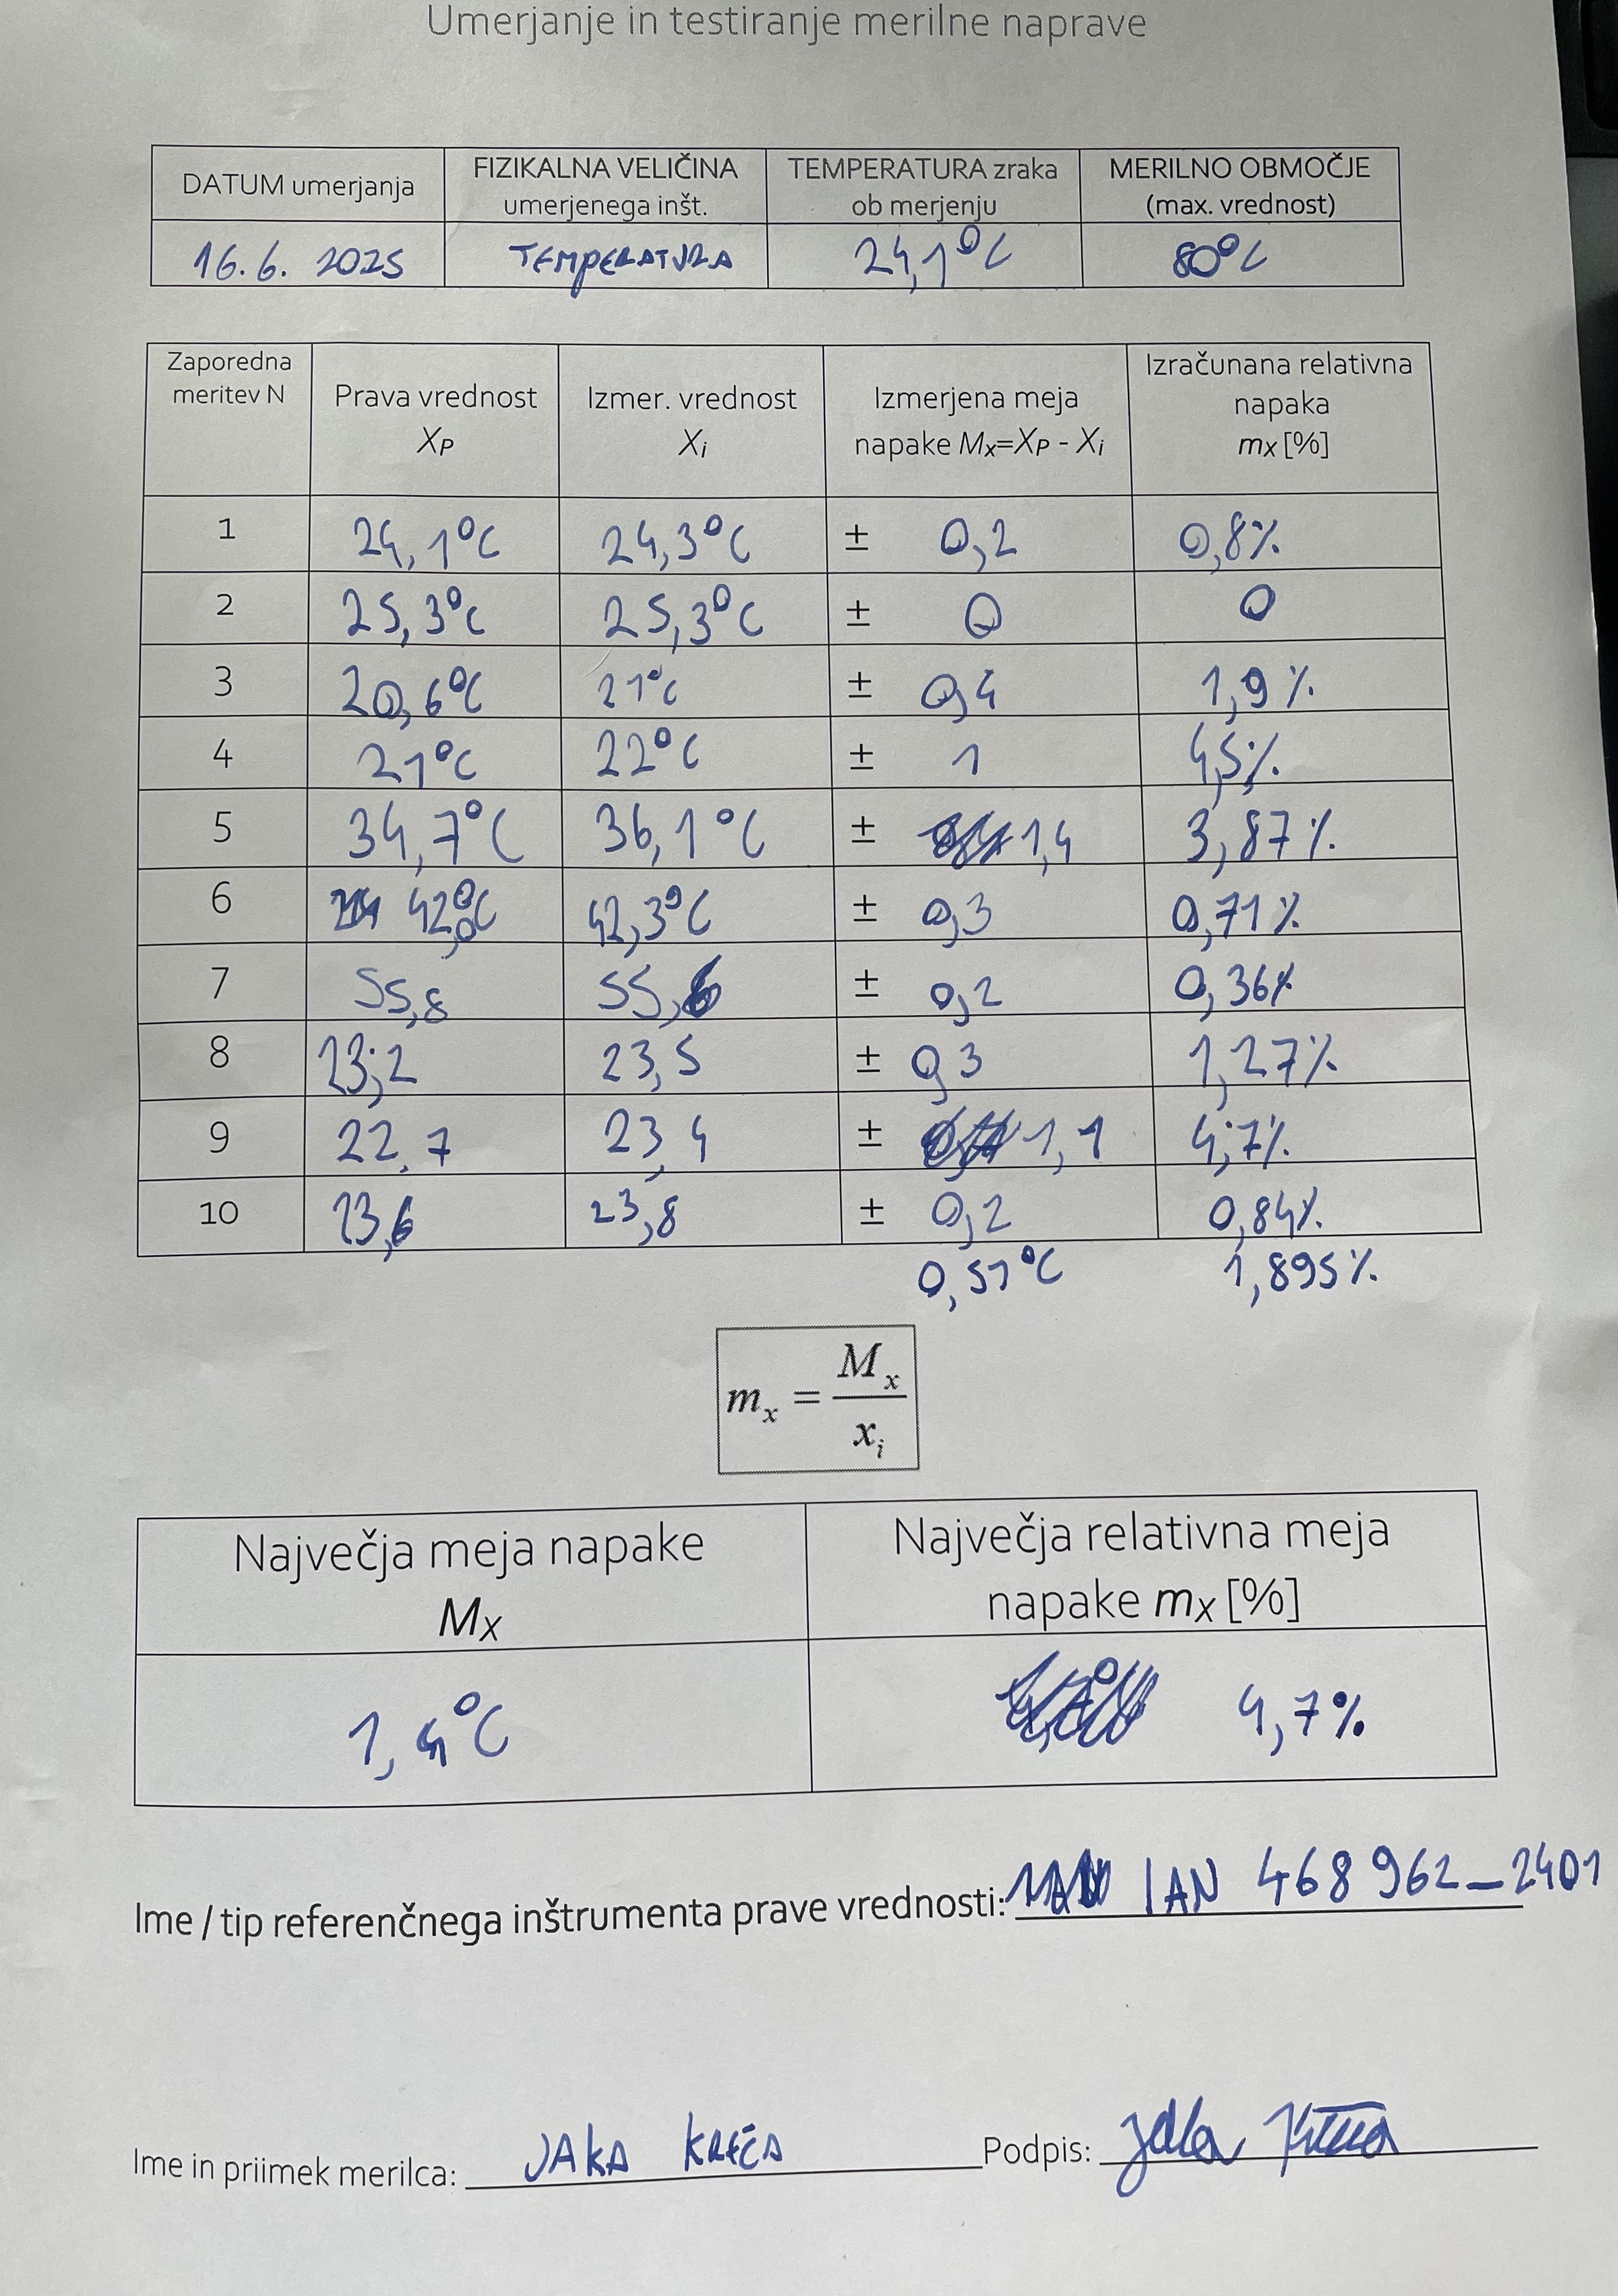 Umerjanje in testiranje merilne naprave
DATUM umerjanja FIZIKALNA VELIČINA umerjenega inšt. TEMPERATURA zraka ob merjenju MERILNO OBMOČJE (max. vrednost)
16.6. 2025 TEMPERATURA 24,1°C 80°C
Zaporedna meritev N Prava vrednost XP Izmer. vrednost Xi Izmerjena meja napake Mx=XP - Xi Izračunana relativna napaka mx [%]
1 24,1°C 24,3°C ± 0,2 0,8%
2 25,3°C 25,3°C ± 0 0
3 20,6°C 21°C ± 0,4 1,9%
4 21°C 22°C ± 1 4,5%
5 34,7°C 36,1°C ± 1,4 3,87%
6 42,0°C 42,3°C ± 0,3 0,71%
7 55,8 55,6 ± 0,2 0,36%
8 23,2 23,5 ± 0,3 1,27%
9 22,7 23,4 ± 1,1 4,7%
10 23,6 23,8 ± 0,2 0,84%
0,51°C 1,895%
mx = Mx / xi
Največja meja napake Mx Največja relativna meja napake mx [%]
1,4°C 4,7%
Ime / tip referenčnega inštrumenta prave vrednosti: IAN 468962_2401
Ime in priimek merilca: JAKA KREČA Podpis: Jaka